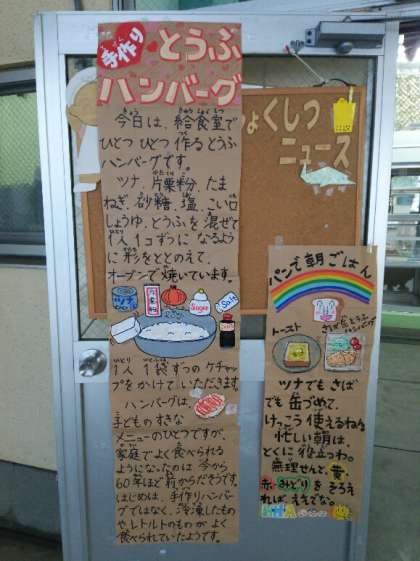 手作り
とうふ
ハンバーグ
今日は、給食室で
ひとつ ひとつ 作る とうふ
ハンバーグです。
ツナ、片栗粉、たま
ねぎ、砂糖、塩、こい口
しょうゆ、とうふを 混ぜて
1人 1コずつに なるよう
に 形をととのえて、
オーブンで 焼いています。
ツナ
片栗粉
Sugar
Salt
1人 1袋ずつの ケチャッ
プをかけて いただきます
ハンバーグは、
子どものすきな
メニューのひとつですが、
家庭でよく食べられる
ようになったのは 今から
60年ほど 前からだそうです。
はじめは、手作りハンバー
グではなく、冷凍したもの
や レトルトのものが よく
食べられていたようです。
ょくしつ
ニュース
パンで 朝ごはん
トースト
ツナでも さば
でも 缶づめて、
けっこう 使えるねん
忙しい朝は、
とくに 役立つわ。
無理せんと、黄・
赤・みどりを そろえ
れば ええでな。